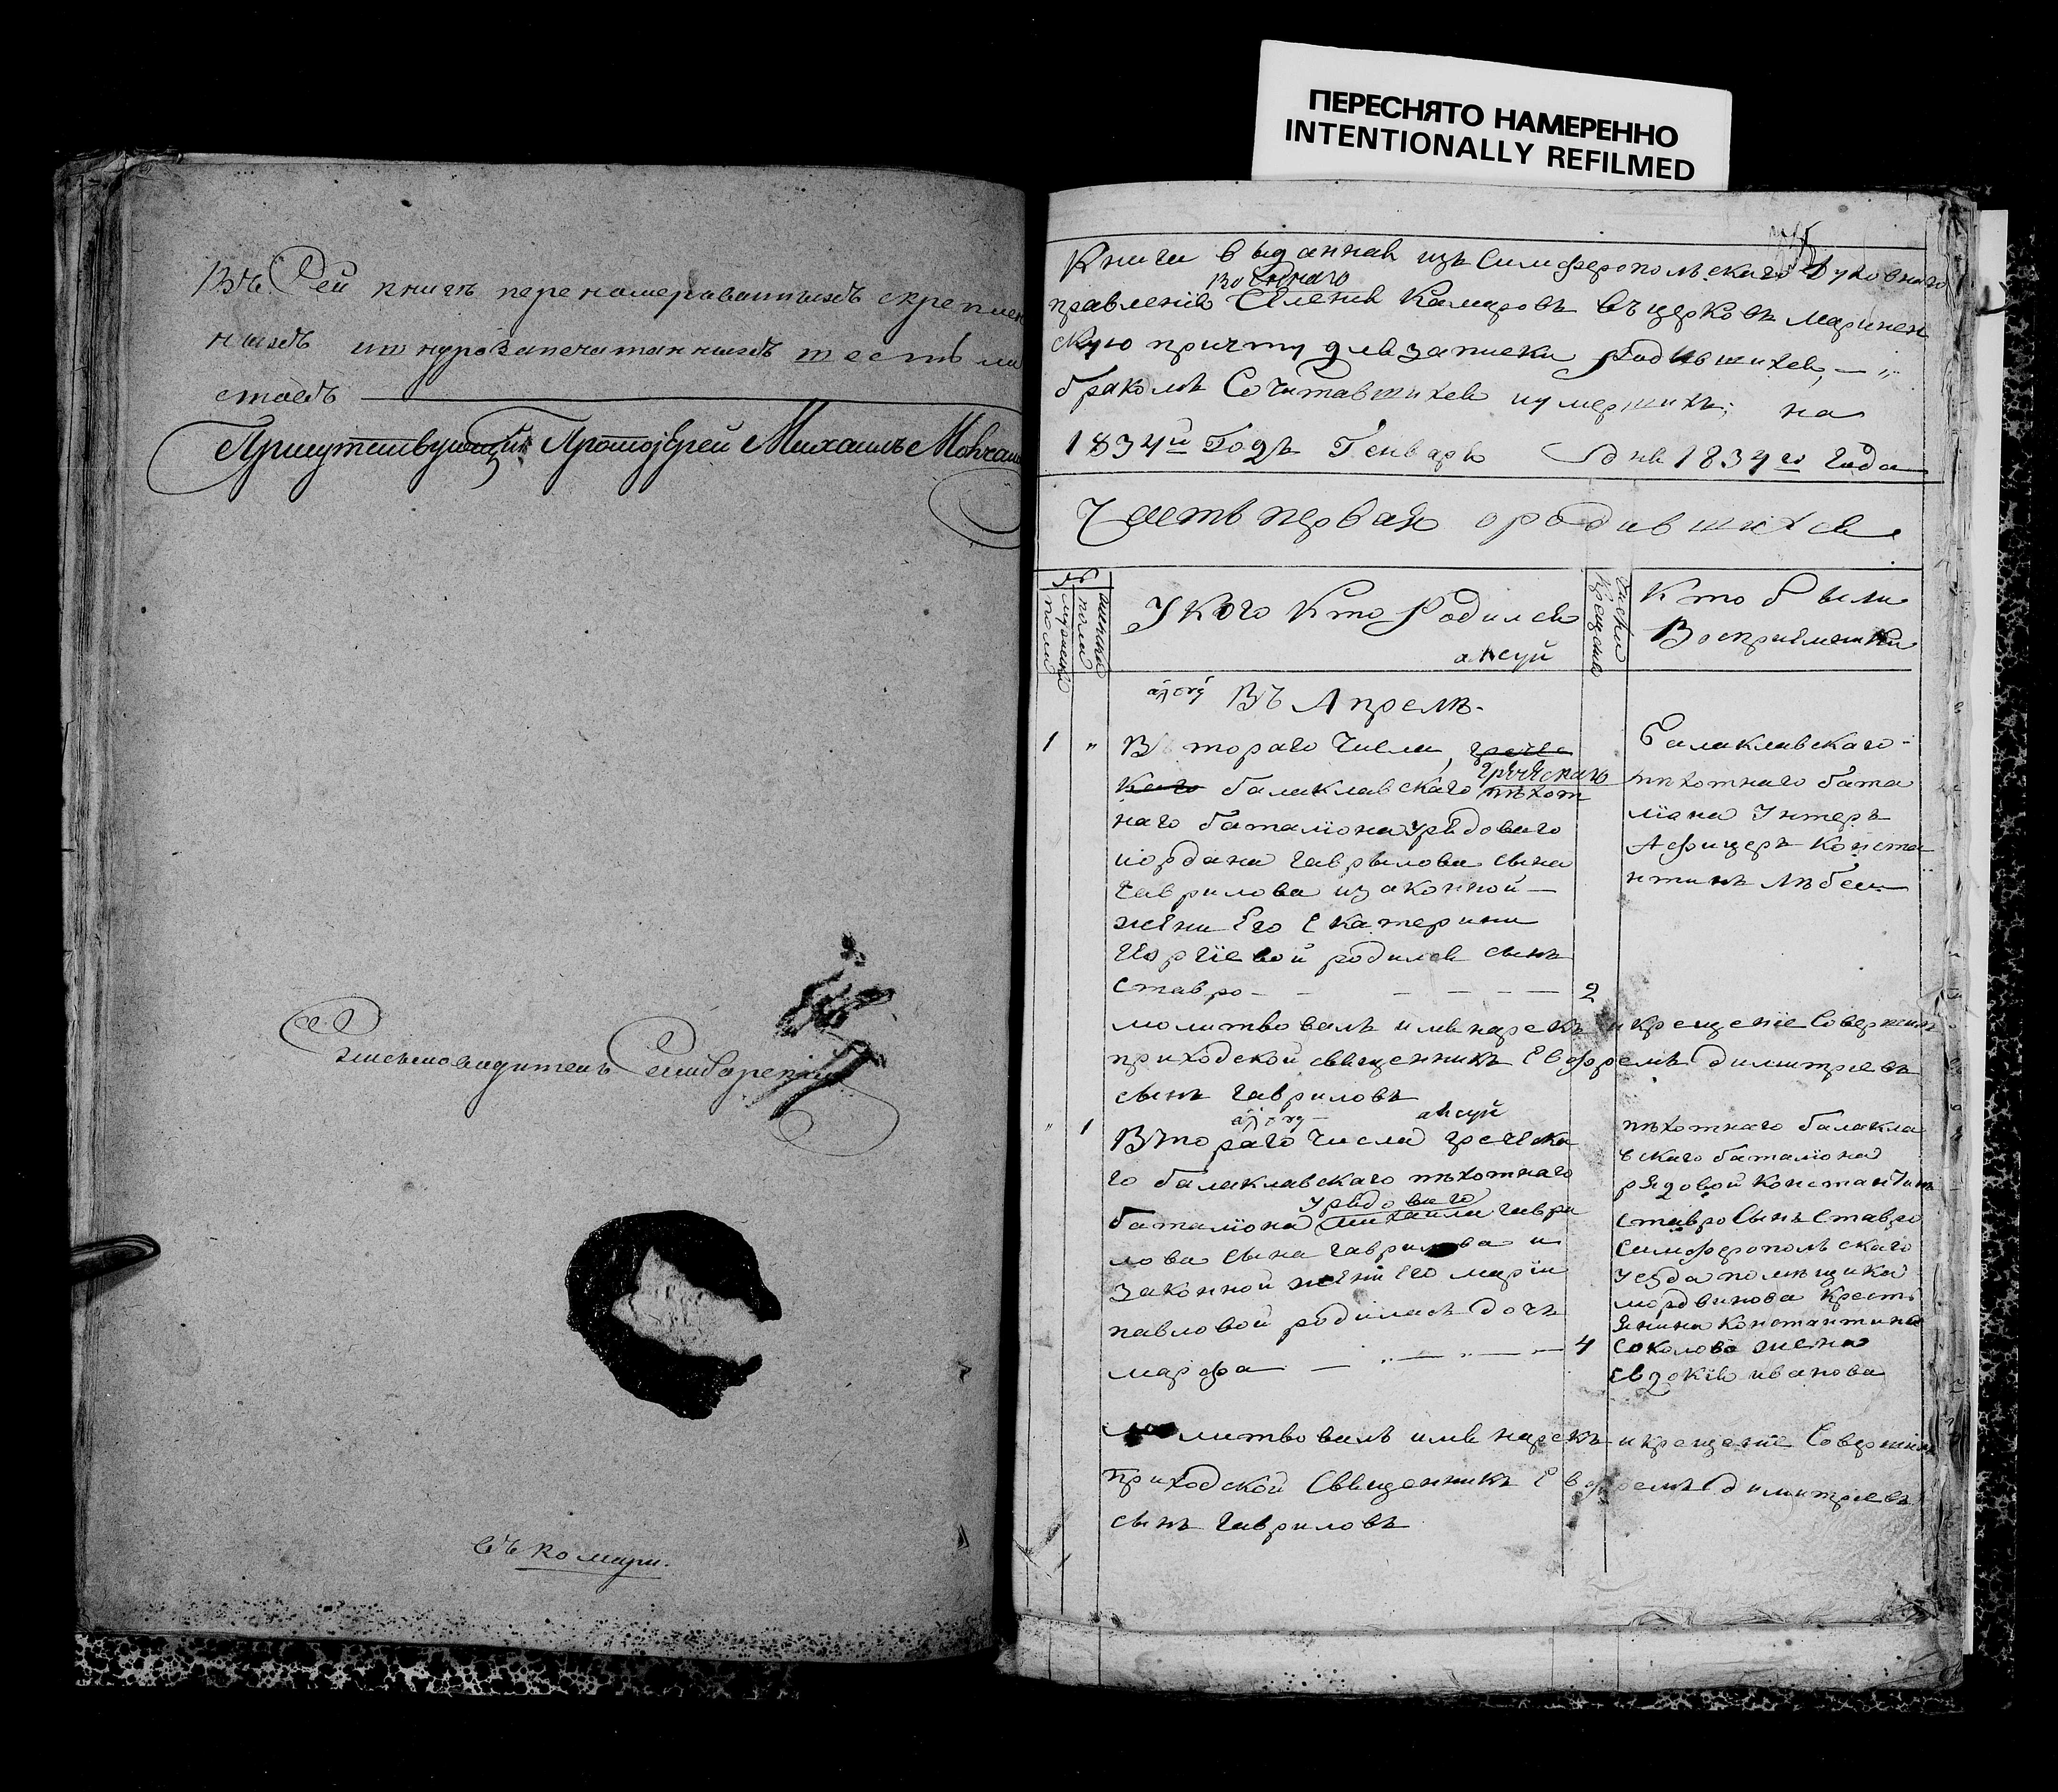 ПЕРЕСНЯТО НАМЕРЕННО
INTENTIONALLY REFILMED
Въ Сей книгѣ перенумерованныхъ скреплен
ныхъ и шнурозапечатанныхъ шесть ли
стовъ
Присутствующій Протоіерей Михаилъ
Письмоводитель
въ комары.
Книга выданная изъ Симферопольскаго Духовнаго
правленія Селенія Камаровъ въ церковь маринен
скую причту для записки родившихся, — „
бракомъ Сочитавшихся иумершихъ; на
1834й Годъ Генваря дня 1834го Года
Часть первая ородившихся
№
мужеска пола
женска пола
Укого Кто Родился
Число крещенія
Кто были
Воспріемники
Въ Апрелѣ.
1 „ Втораго Числа, грече
каго балаклавскаго греческаго пѣхот
наго баталіона урядоваго
іордана гаврылова сына
гаврилова изаконной —
жени Его Екатерини
Георгіевой родился сынъ
Ставро — — — — — — 2
Балаклавскаго
пѣхотнаго бата
ліона Унтеръ
Афицеръ Конста
нтинъ
молитвовалъ имя нарекъ и крещеніе Совершилъ
приходской священникъ Евфремъ димитріевъ
сынъ гавриловъ
„ 1 Втораго Числа гречіска
го балаклавскаго пѣхотнаго
баталіона урядоваго михаила гаври
лова сына гаврилова и
законной жени Его маріи
павловой родилась дочь
марфа — „ — „ — — 4
пѣхотнаго балакла
вскаго баталіона
рядовой константинъ
ставро Сынъ Ставро
Симферопольскаго
уезда помѣщика
мордвинова кресть
янина константина
Соколова жена
Евдокія иванова
молитвовалъ имя нарекъ и крещеніе Совершилъ
приходской Священникъ Евфремъ димитріевъ
сынъ гавриловъ